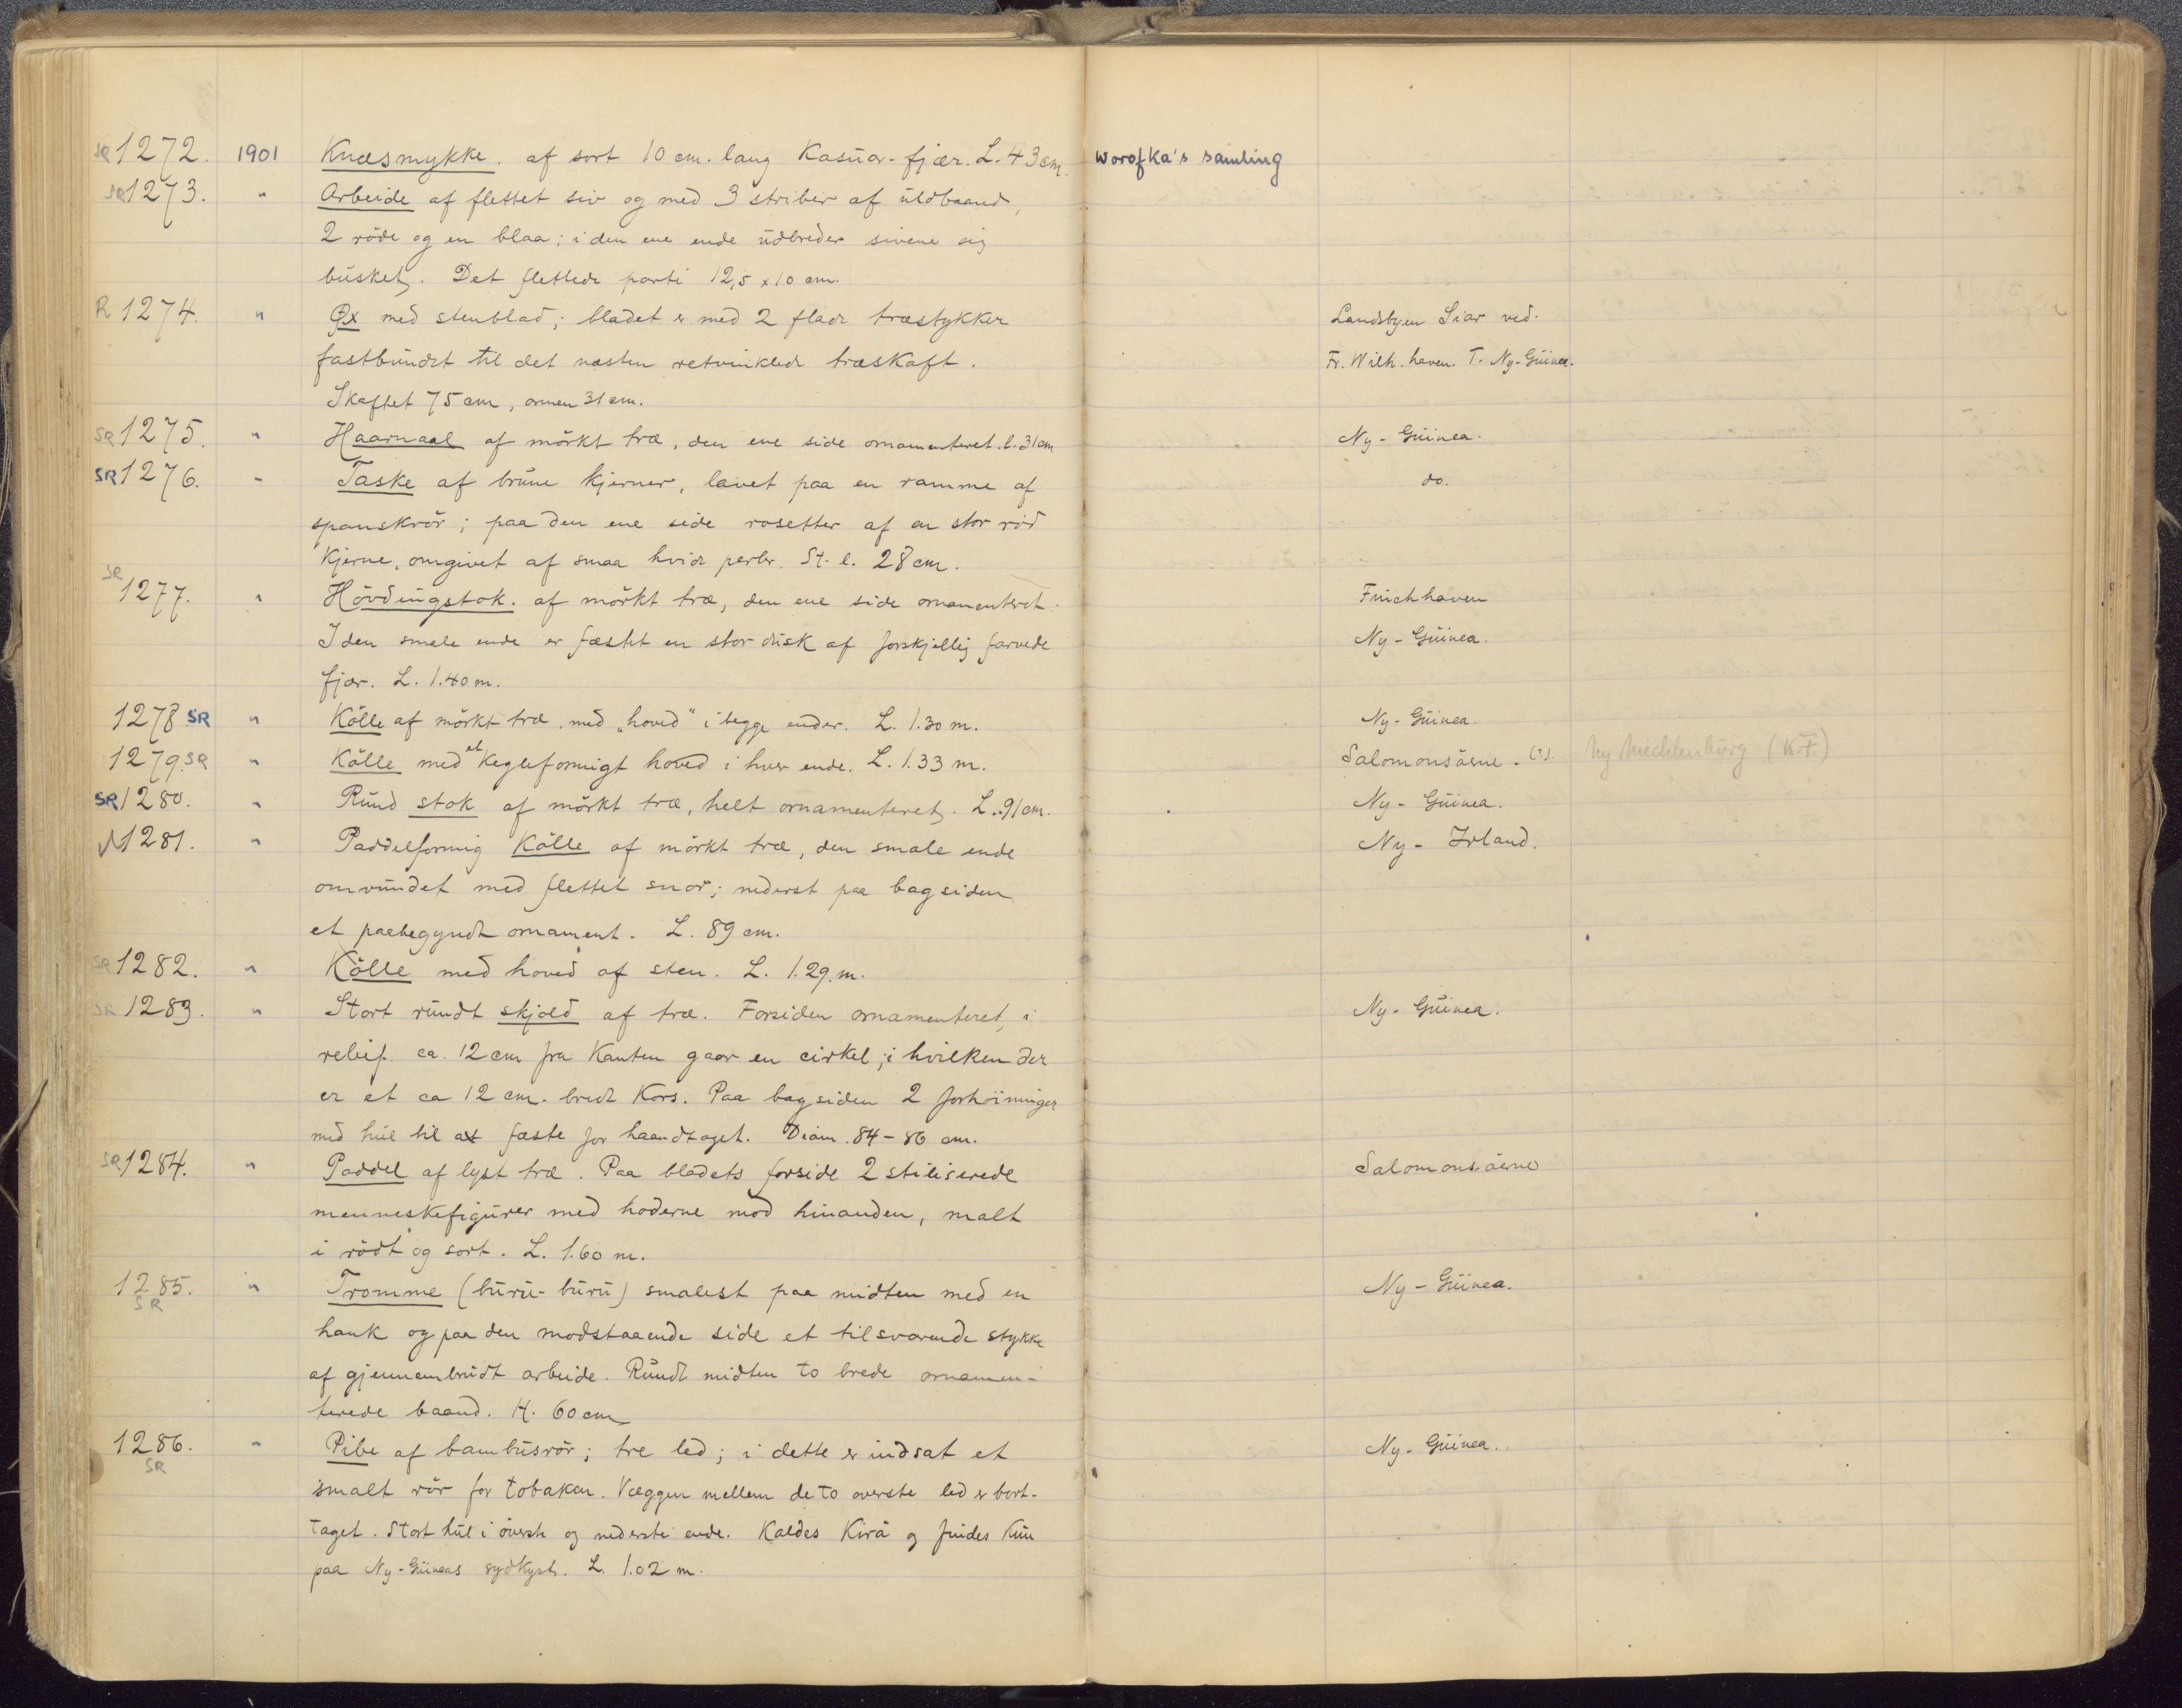 SR 1272. 1901 Knæsmykke. af sort 10 cm. lang Kasuar-fjær. L. 43 cm. Worofka's samling
SR 1273. " Arbeide af flettet siv og med 3 striber af uldbaand,
2 röde og en blaa; i den ene ende udbreder sivene sig
busket. Det flettede parti 12,5 x 10 cm.
R 1274. " Øx med stenblad; bladet er med 2 flade træstykker Landsbyen Siar ved.
fastbundet til det næsten retvinklede træskaft. Fr. Wilh. haven. T. Ny-Guinea.
Skaftet 75 cm, armen 31 cm.
SR 1275. " Haarnaal af mörkt træ, den ene side ornamenteret. l. 31 cm Ny-Guinea.
SR 1276. " Taske af brune kjerner, lavet paa en ramme af do.
spanskrör; paa den ene side rosetter af en stor röd
Kjerne, omgivet af smaa hvide perler. St. l. 28 cm.
SR
1277. " Hövdingstok. af mörkt træ, den ene side ornamenteret. Finchhaven
I den smale ende er fæstet en stor dusk af forskjellig farvede Ny-Guinea.
fjær. L. 1.40 m.
1278 SR " Kölle af mörkt træ, med „hoved" i begge ender. L. 1.30 m. Ny-Guinea.
1279. SR " Kölle med et Kegleformigt hoved i hver ende. L. 1.33 m. Salomonsöerne. (?) Ny Mecklenburg (K.F)
SR 1280. " Rund stok af mörkt træ, helt ornamenteret. L. 91 cm. Ny-Guinea.
1281. " Paddelformig Kölle af mörkt træ, den smale ende Ny-Irland.
omvundet med flettet snor; nederst paa bagsiden
et paabegyndt ornament. L. 89 cm.
SR 1282. " Kölle med hoved af sten. L. 1.29. m.
SR 1283. " Stort rundt skjold af træ. Forsiden ornamenteret, i Ny-Guinea.
relief. ca. 12 cm fra Kanten gaar en cirkel, i hvilken der
er et ca 12 cm. bredt Kors. Paa bagsiden 2 forhöininger
med hul til at fæste for haandtaget. Diam. 84-86 cm.
SR 1284. " Paddel af lyst træ. Paa bladets forside 2 stiliserede Salomonsöerne
menneskefigurer med hoderne mod hinanden, malt
i rödt og sort. L. 1.60 m.
1285. " Tromme (buru-buru) smalest paa midten med en Ny-Guinea.
SR
hank og paa den modstaaende side et tilsvarende stykke
af gjennembrudt arbeide. Rundt midten to brede ornamen-
terede baand. H. 60 cm
1286. " Pibe af bambusrör; tre led; i dette er indsat et Ny-Guinea.
SR
smalt rör for tobaken. Væggen mellem de to øverste led er bort-
taget. Stort hul i överste og nederste ende. Kaldes Kirå og findes kun
paa Ny-Guineas sydkyst. L. 1.02 m.